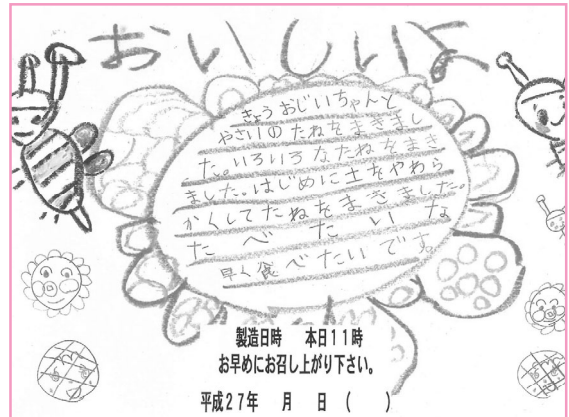 おいしいよ
きょうおじいちゃんと
やさいのたねをまきまし
た。いろいろなたねをまき
ました。はじめに土をやわら
かくしてたねをまきました。
たべたいな
早く食べたいです
製造日時　本日11時
お早めにお召し上がり下さい。
平成27年　月　日（　）